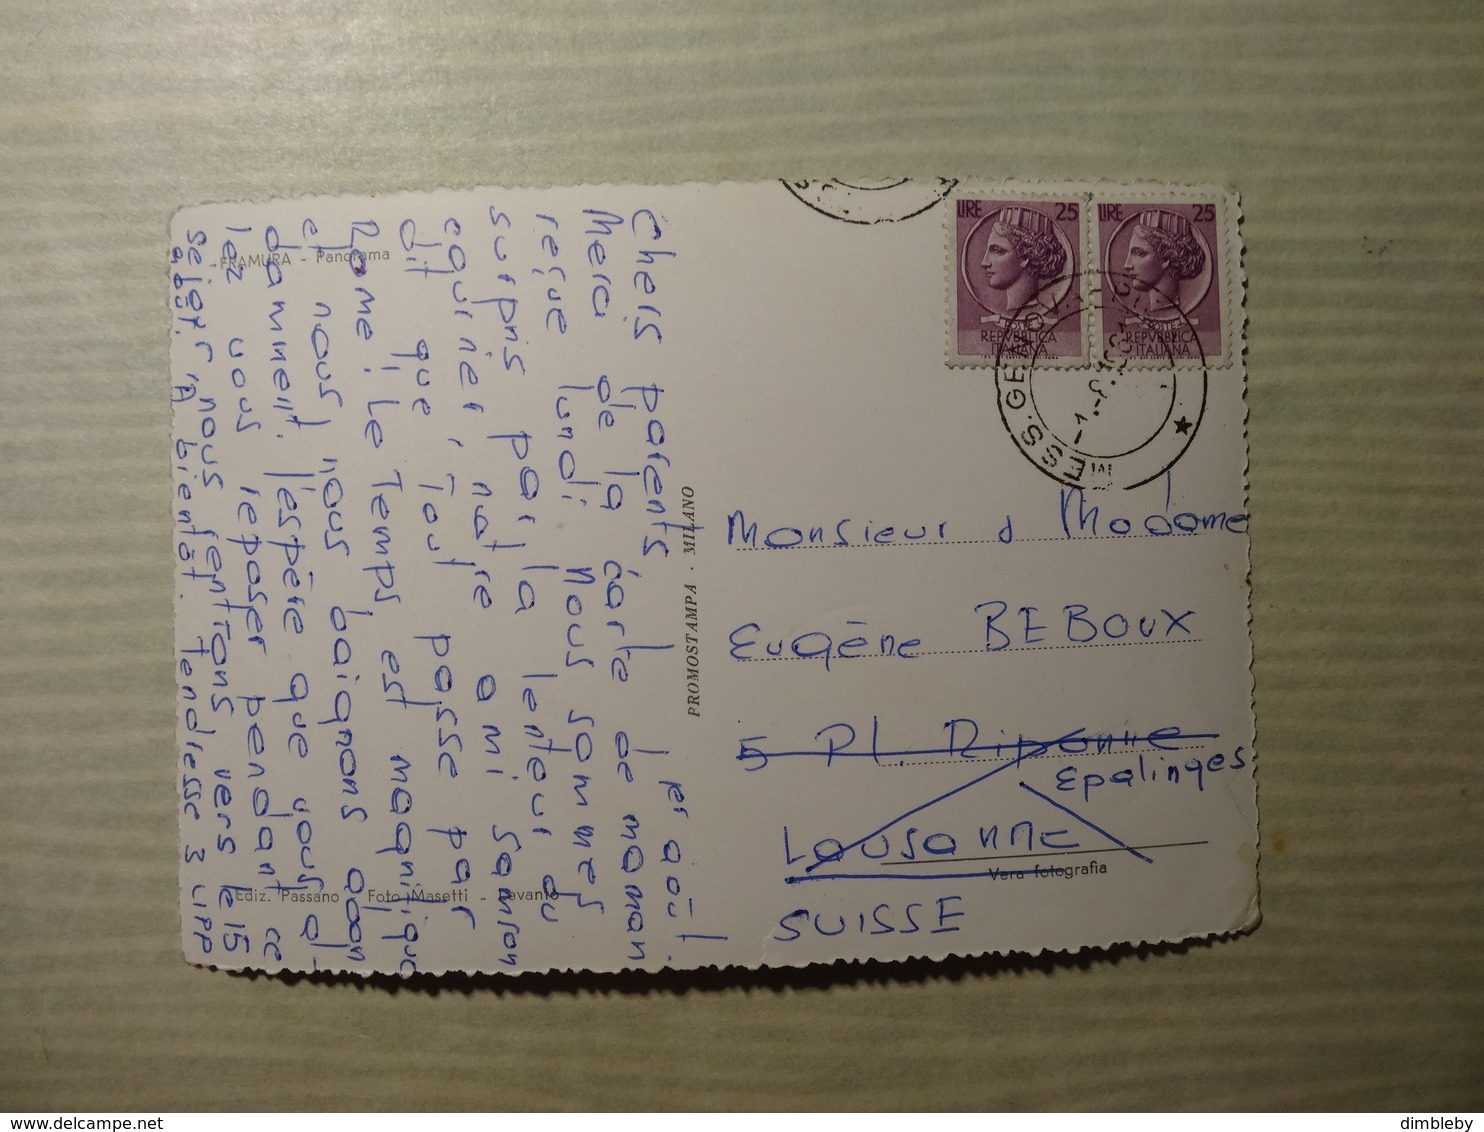 FRAMURA - Panorama
1er août.
Chers parents
Merci de la carte de maman
reçue lundi. Nous sommes
surpris par la lenteur du
courrier, notre ami Samson
dit que tout passe par
Rome! Le temps est magnifique
et nous nous baignons abon
damment. J'espère que vous al-
lez vous reposer pendant ce
séjour. nous rentrons vers le 15
août. A bientôt. Tendresse
Ediz. Passano - Foto Masetti - Levanto
PROMOSTAMPA · MILANO
LIRE 25
REPVBBLICA
ITALIANA
LIRE 25
POSTE
REPVBBLICA
ITALIANA
MESS. GENOVA
Monsieur & Madame
Eugène BEBOUX
5 Pl. Riponne
Epalinges
Lausanne
Vera fotografia
SUISSE
delcampe.net
dimbleby